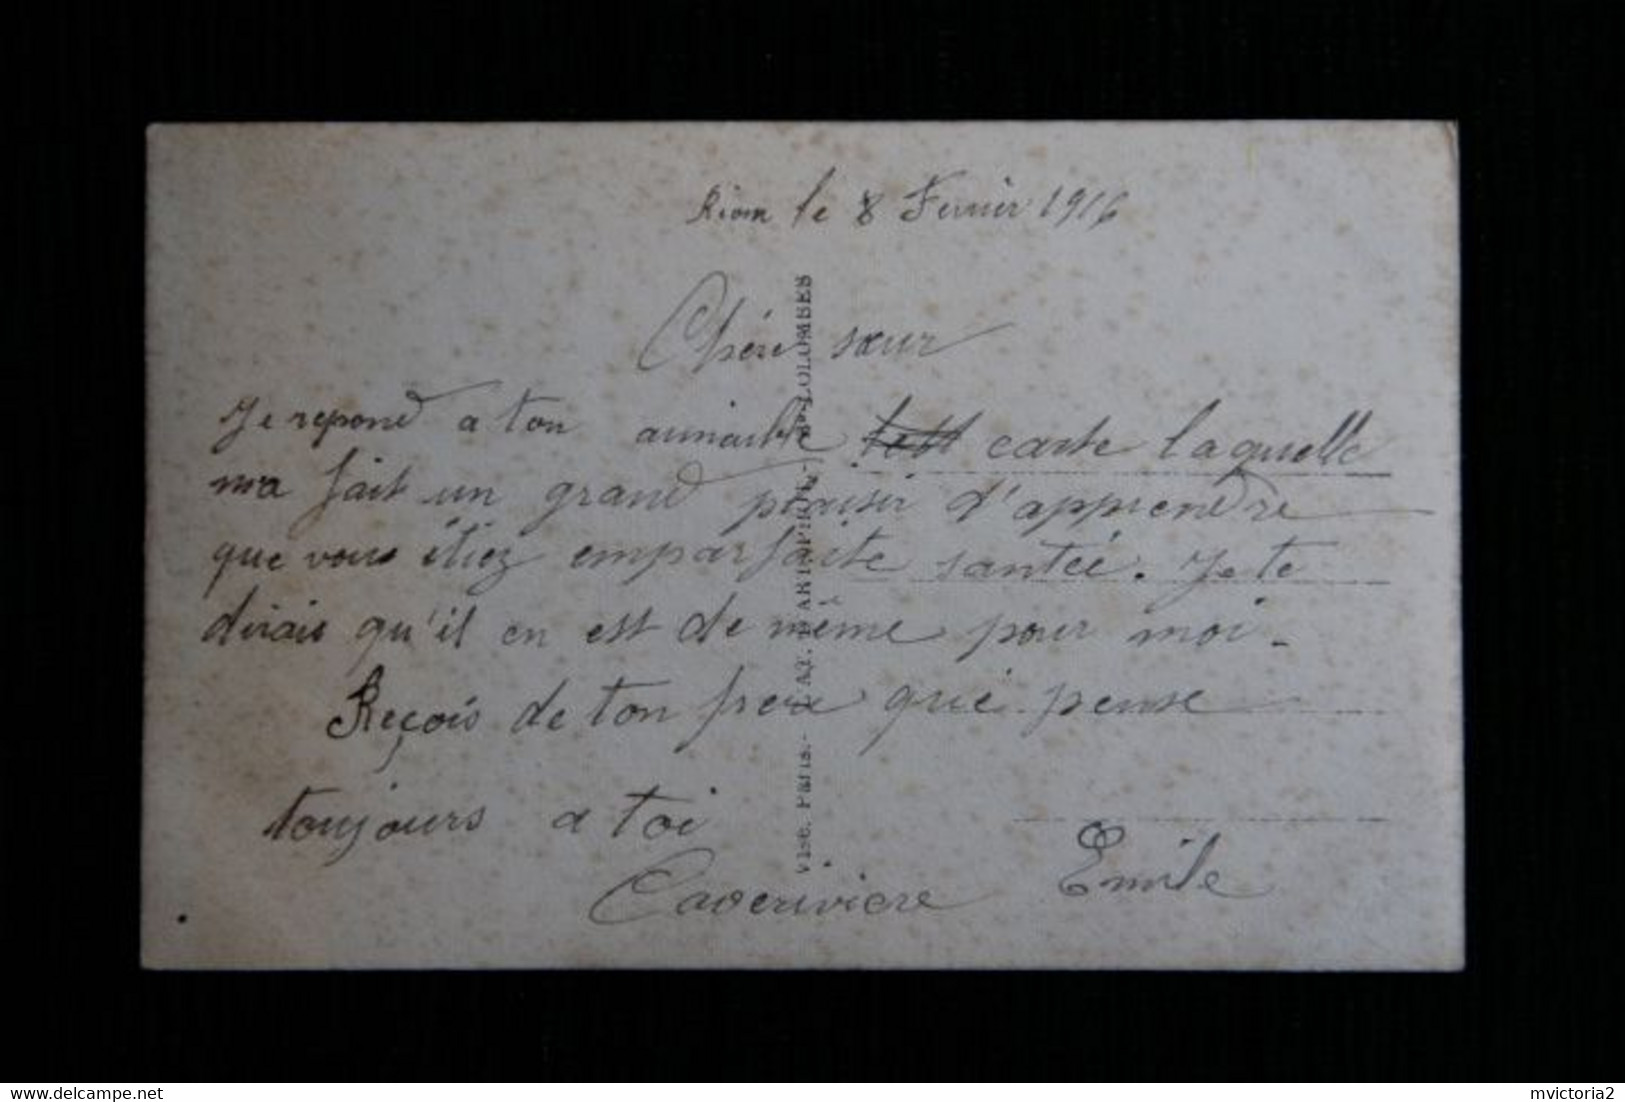 Riom le 8 Fevrier 1916
Chère sœur
Je repond a ton aimable carte laquelle
ma fait un grand plaisir d'apprendre
que vous étiez emparfaite santée. Je te
dirais qu'il en est de même pour moi.
Reçois de ton frere qui pense
toujours a toi
Emile
Caverivière
Visé. Paris. - AT. D'ART. PIROT. - COLOMBES
delcampe.net
mvictoria2